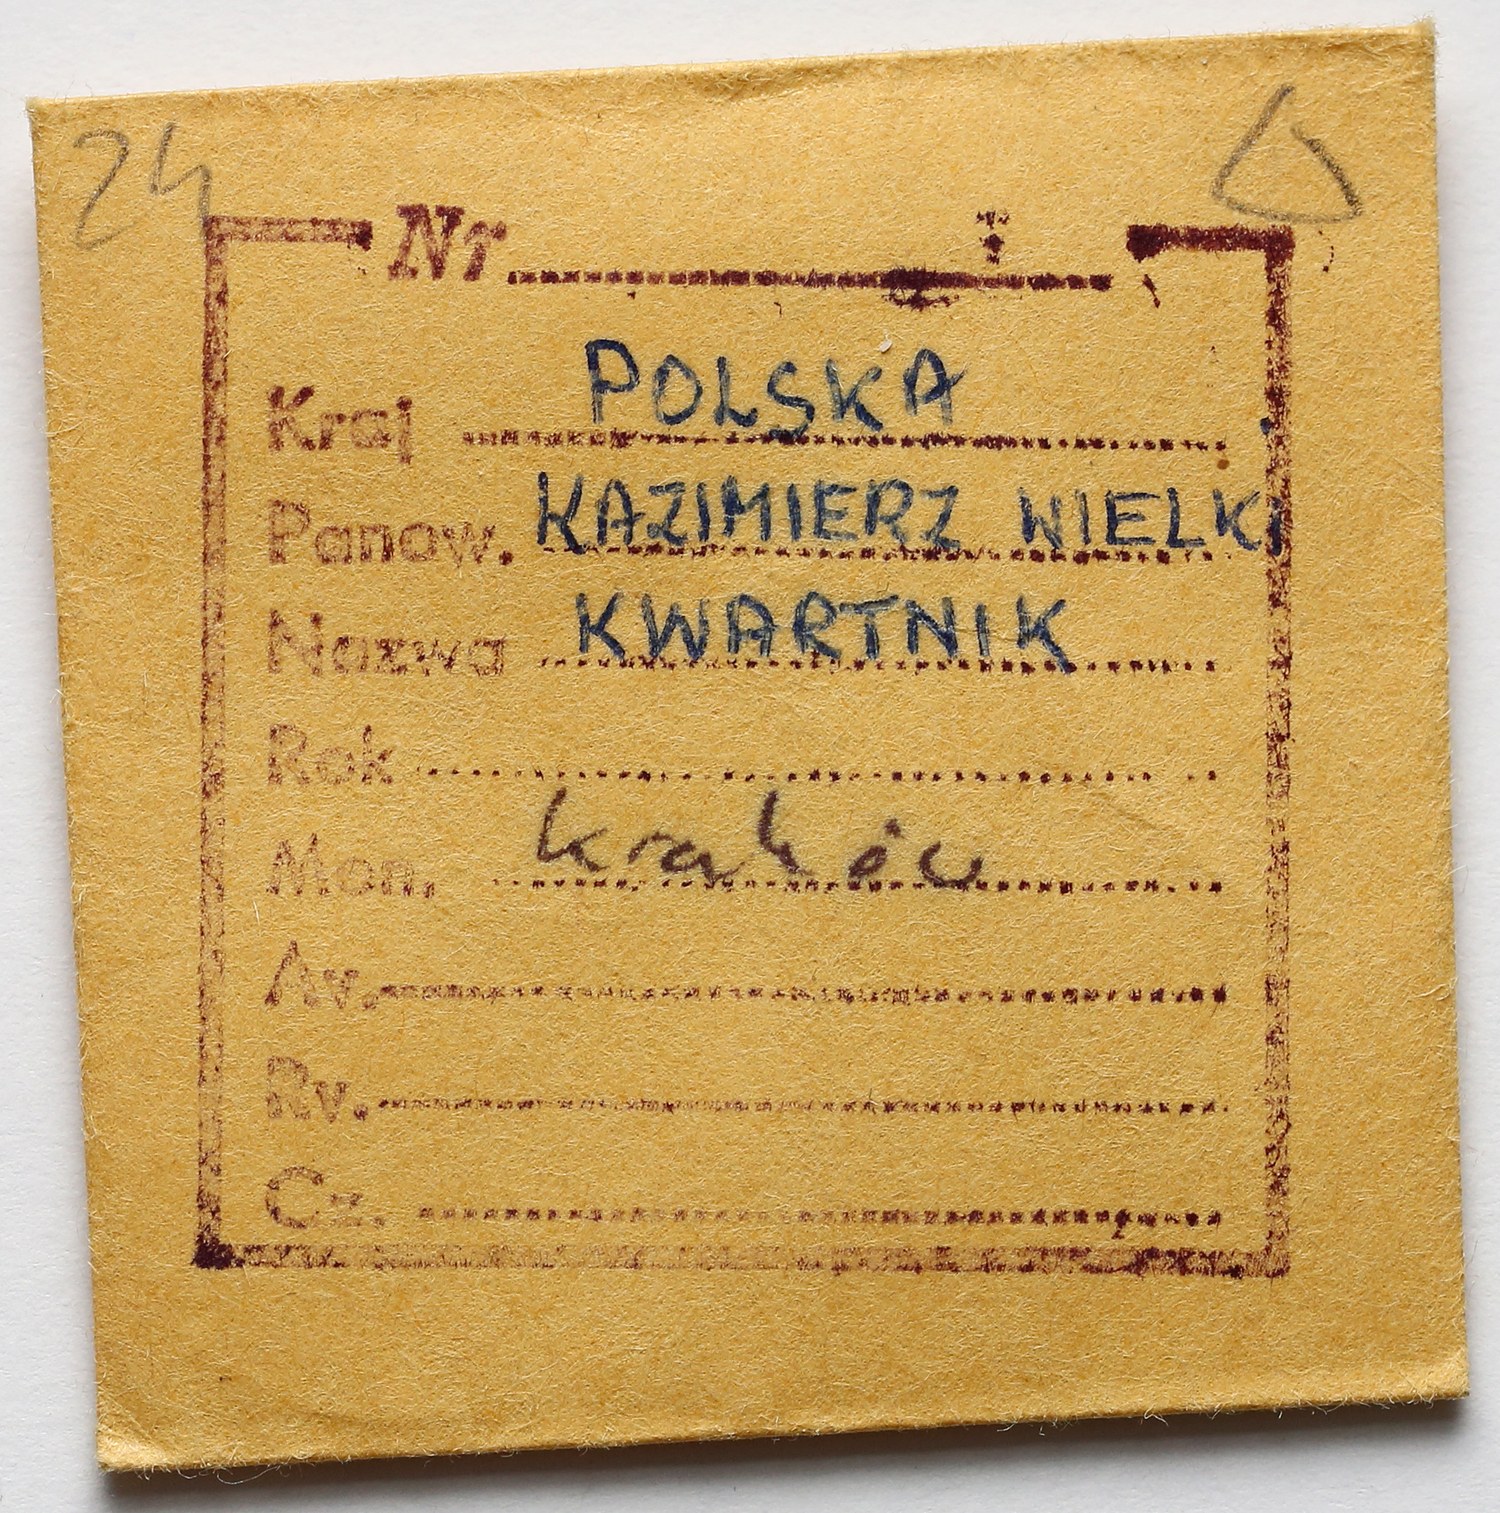 24
Nr
Kraj POLSKA
Panow. KAZIMIERZ WIELKI
Nazwa KWARTNIK
Rok
Men. Kraków
Av.
Rv.
Cz.